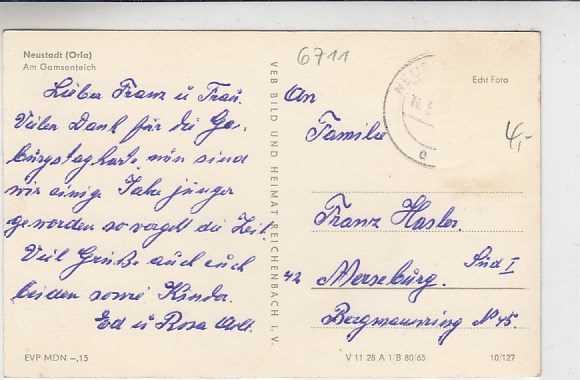 Neustadt (Orla)
Am Gamsenteich
Lieber Franz u Frau.
Vielen Dank für die Ge-
burstagkarte, nün sind
wir einige Jahre junger
geworden so vergeht die Zeit.
Viel Grüße auch euch
beiden sowie Kinder.
Ed ü Rosa
EVP MDN –,15
VEB BILD UND HEIMAT REICHENBACH I. V.
6711
Echt Foto
4,-
An
Familie
Franz Hasler.
42 Merseburg. Süd I
Bergmannring No 45.
V 11 28 A 1/B 80/65
10/127